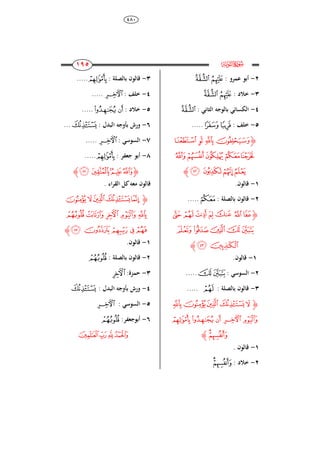 ٤٨٠
١٩٥
٢- أبو عمرو : عَلَيْهِمِ ٱلشُّقَّةُ
٣- خلاد : عَلَيْهُمُ ٱلشُّقَّةُ
٤- الكسائي بالوجه الثاني : ٱلشُّقَّةُ
٥- خلف : قَرِيبًا وَسَفَرًا .....
﴿ وَسَيَحْلِفُونَ بِٱللَّهِ لَوِ ٱسْتَطَعْنَا
لَخَرَجْنَا مَعَكُمْ يُهْلِكُونَ أَنفُسَهُمْ وَٱللَّهُ
يَعْلَمُ إِنَّهُمْ لَكَٰذِبُونَ ﴾
١- قالون.
٢- قالون بالصلة : مَعَكُمُۥ .....
﴿ عَفَا ٱللَّهُ عَنكَ لِمَ أَذِنتَ لَهُمْ حَتَّىٰ
يَتَبَيَّنَ لَكَ ٱلَّذِينَ صَدَقُوا۟ وَتَعْلَمَ
ٱلْكَٰذِبِينَ ﴾
١- قالون.
٢- السوسي : يَتَبَيَّن لَّكَ .....
٣- قالون بالصلة : لَهُمُۥ .....
﴿ لَا يَسْتَـْٔذِنُكَ ٱلَّذِينَ يُؤْمِنُونَ بِٱللَّهِ
وَٱلْيَوْمِ ٱلْـَٔاخِرِ أَن يُجَٰهِدُوا۟ بِأَمْوَٰلِهِمْ
وَأَنفُسِهِمْ ﴾
١- قالون .
٢- خلاد : وَأَنفُسِهِمْ
٣- قالون بالصلة : بِأَمْوَٰلِهِمُۥ .....
٤- خلف : ٱلْـَٔاخِرِ .....
٥- خلاد : أَن يُجَٰهِدُوا۟ .....
٦- ورش بأوجه البدل : يَسْتَـٰٔذِنُكَ ...
٧- السوسي : ٱلْـَٔاخِرِ .....
٨- أبو جعفر : بِأَمْوَٰلِهِمُۥ .....
﴿ وَٱللَّهُ عَلِيمٌۢ بِٱلْمُتَّقِينَ ﴾
قالون معه كل القراء .
﴿ إِنَّمَا يَسْتَـْٔذِنُكَ ٱلَّذِينَ لَا يُؤْمِنُونَ
بِٱللَّهِ وَٱلْيَوْمِ ٱلْـَٔاخِرِ وَٱرْتَابَتْ قُلُوبُهُمْ
فَهُمْ فِى رَيْبِهِمْ يَتَرَدَّدُونَ ﴾
١- قالون.
٢- قالون بالصلة : قُلُوبُهُمُۥ
٣- حمزة: ٱلْـَٔاخِرِ
٤- ورش بأوجه البدل : يَسْتَـٰٔذِنُكَ
٥- السوسي : ٱلْـَٔاخِرِ .....
٦- أبوجعفر: قُلُوبُهُمُۥ
وَٱلْحَمْدُ لِلَّهِ رَبِّ ٱلْعَٰلَمِينَ